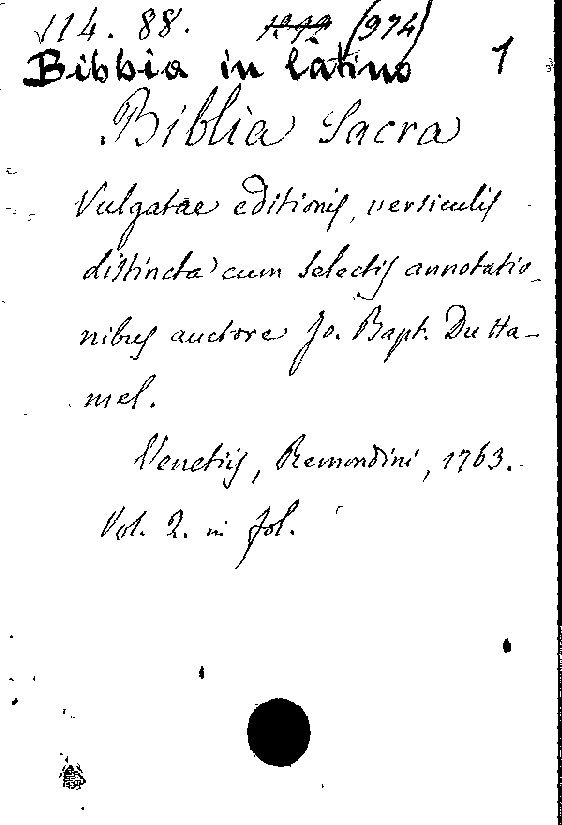 114. 88. (974)
Bibbia in latino 1
Biblia Sacra
Vulgatae editionis, versiculis
distincta cum selectis annotatio_
nibus auctore Jo. Bapt. Du Ha_
mel.
Venetiis, Remondini, 1763.
Vol. 2. in fol.